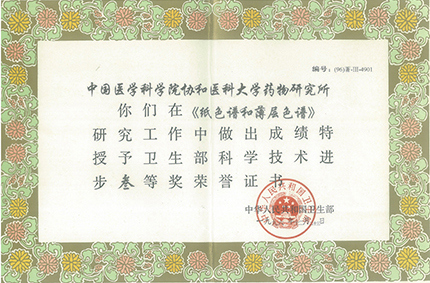 编号：(96)Ⅲ-Ⅲ-4901
中国医学科学院协和医科大学药物研究所
你们在《纸色谱和薄层色谱》
研究工作中做出成绩特
授予卫生部科学技术进
步叁等奖荣誉证书
中华人民共和国卫生部